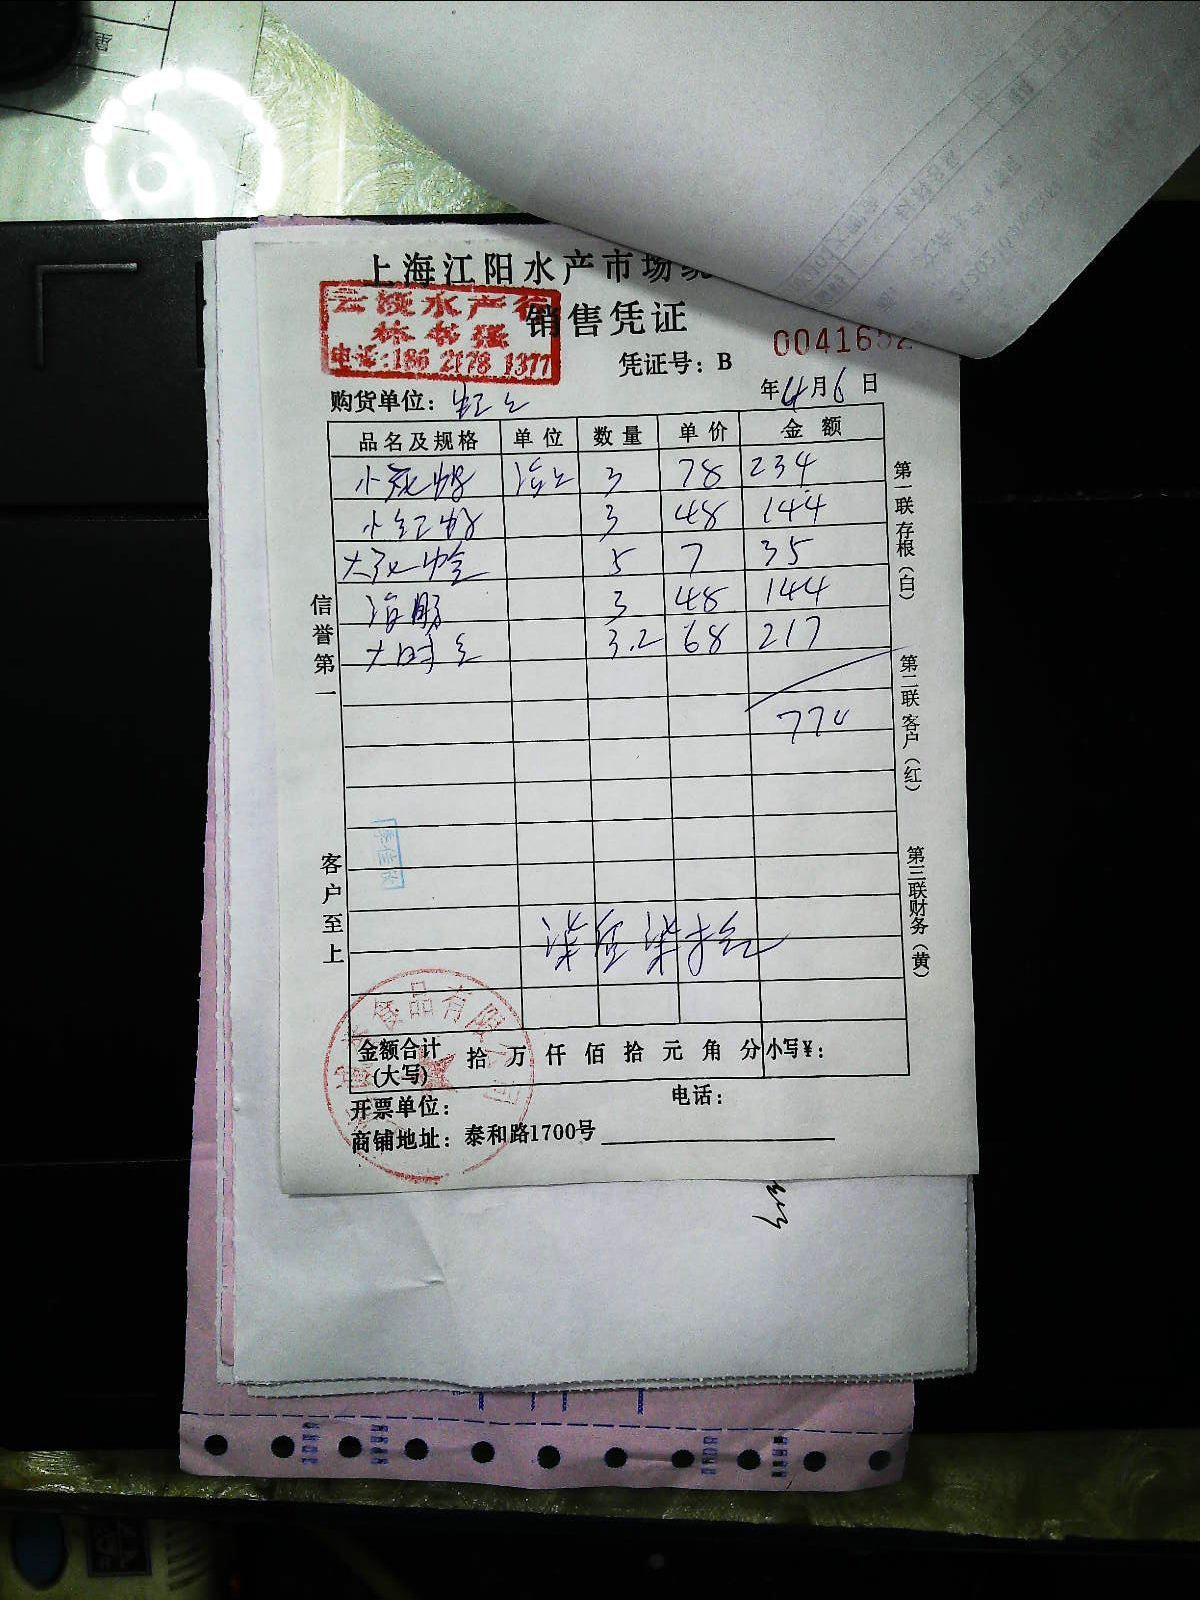 上海江阳水产市场
销售凭证
云溪水产行
林书强
电话:186 2178 1377
凭证号：B
004165
购货单位：
年4月6日
品名及规格 单位 数量 单价 金额
小 3 78 234
小红虾 3 48 144
大 5 7 35
海肠 3 48 144
大 3.2 68 217
770
柒佰柒拾元
信誉第一
客户至上
第一联存根（白）
第二联客户（红）
第三联财务（黄）
食品有限公司
金额合计(大写) 拾 万 仟 佰 拾 元 角 分 小写¥：
开票单位： 电话：
商铺地址：泰和路1700号